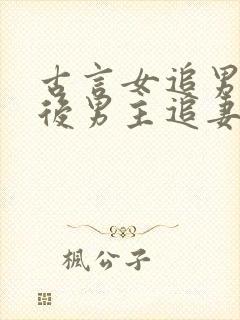 古言女追男
後男主追妻
楓公子